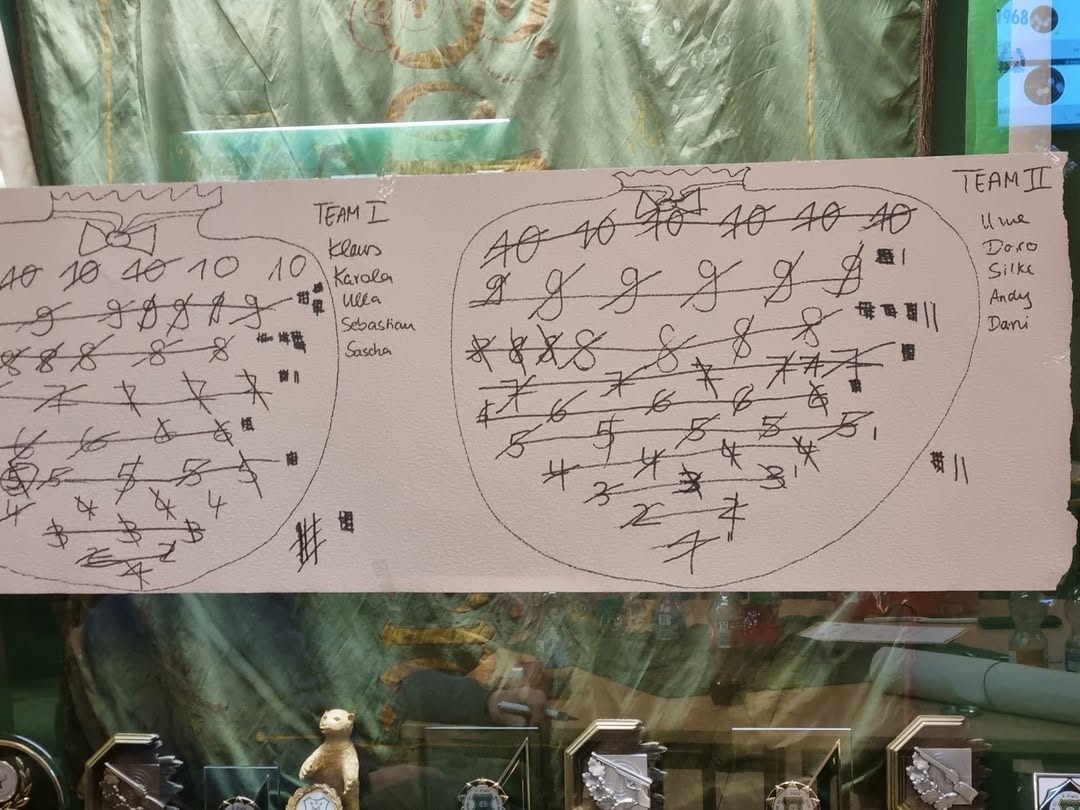 TEAM I
Klaus
Karola
Ulla
Sebastian
Sascha
10 10 10 10 10
9 9 9 9 9 9
8 8 8 8 8
7 7 7 7
6 6 6 6
5 5 5 5 5
4 4 4 4
3 3 3
2 2
1
TEAM II
Uwe
Doro
Silke
Andy
Dani
10 10 10 10 10 10
9 9 9 9 9 9
8 8 8 8 8 8 8
7 7 7 7 7 7
6 6 6 6 6
5 5 5 5 5
4 4 4 4
3 3 3
2 2
1
1968